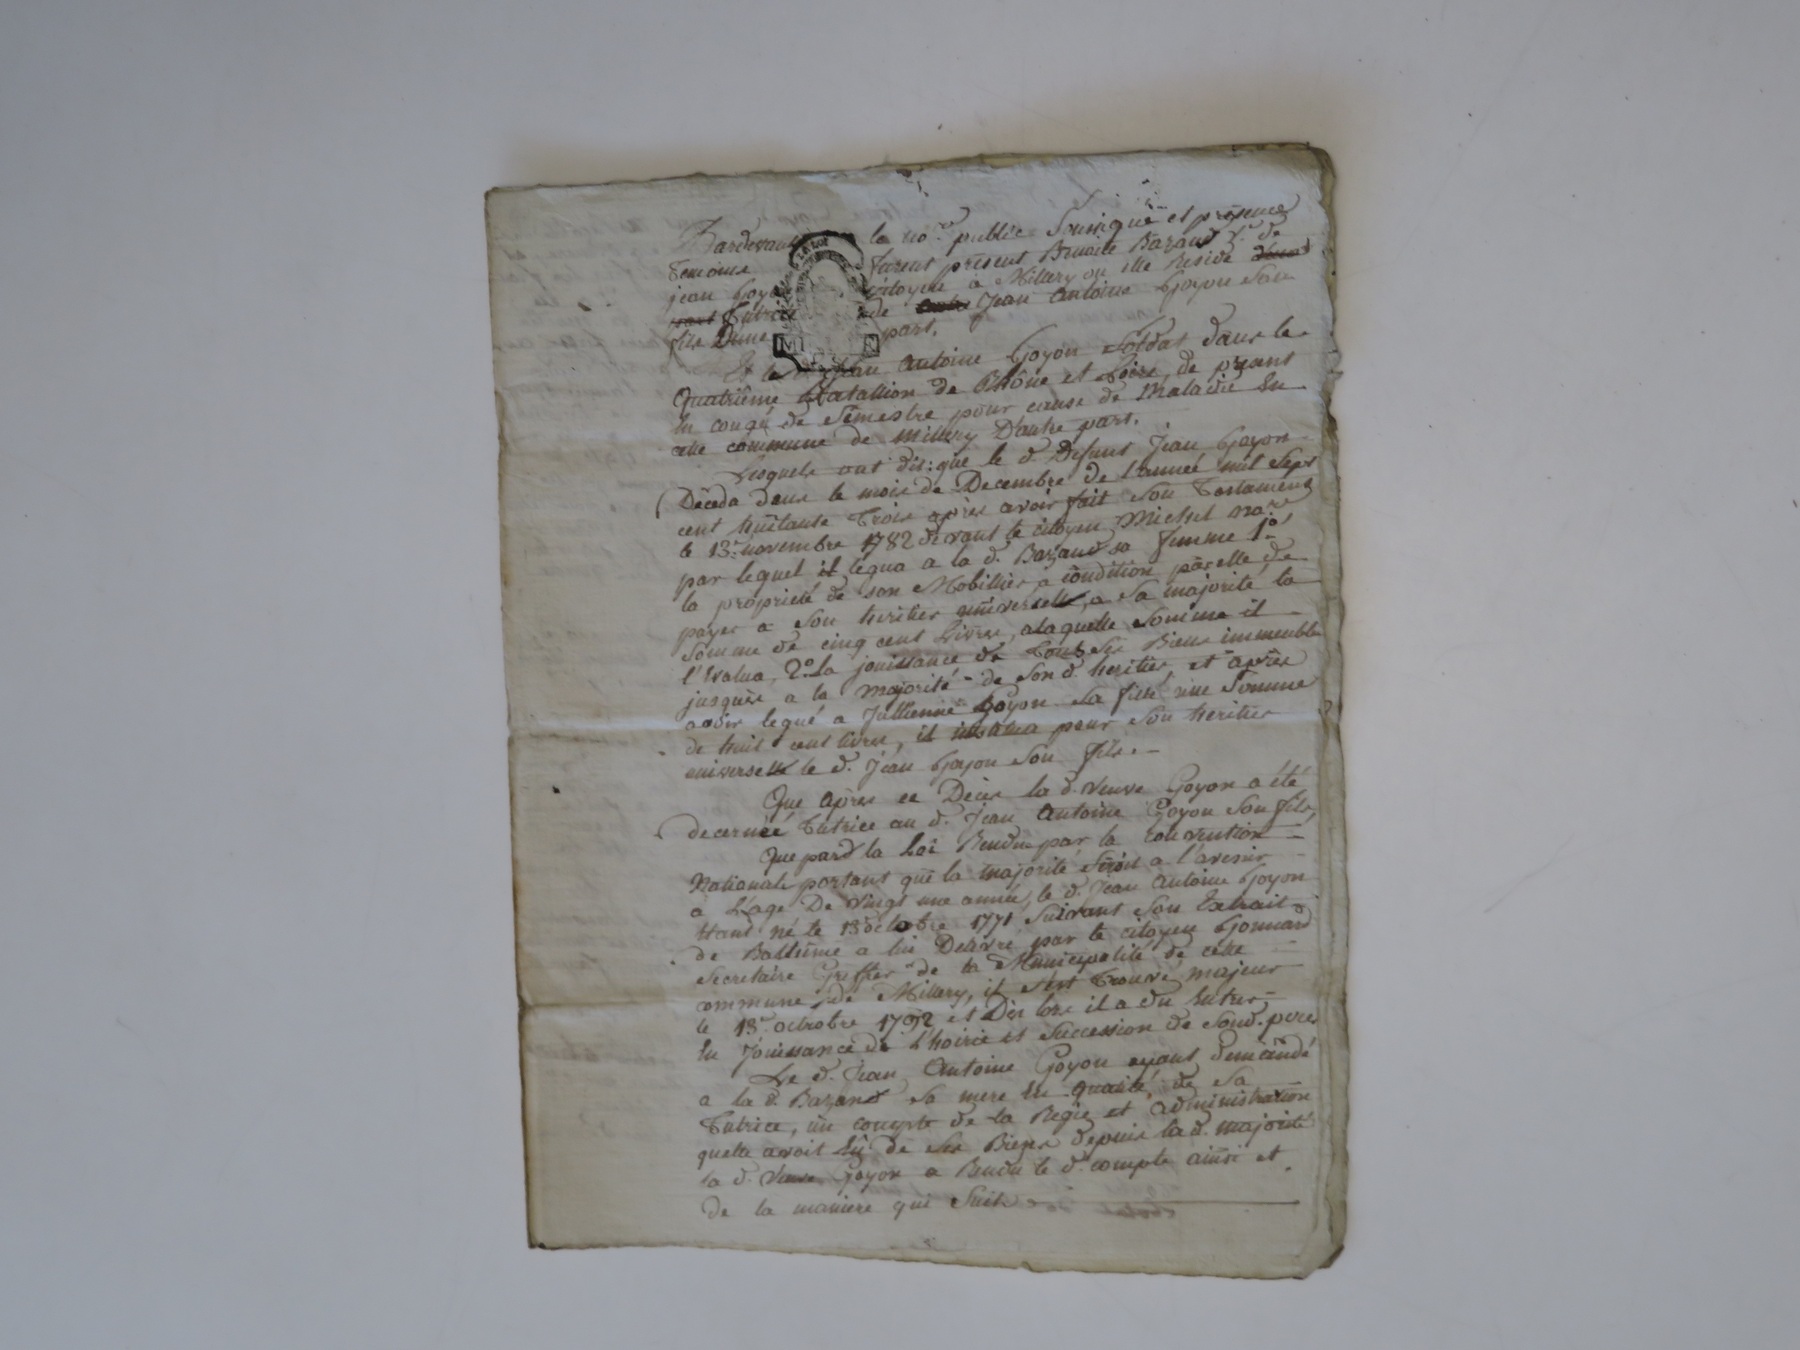 Pardevant le no.re public Soussigné et présence
Temoins furent présent Benoite Bazand v.e de
jean Goyon citoyene a Millery ou elle Reside
Tutrice de Jean Antoine Goyon Son
fils Dune part.
LA LOI
Et le Jean Antoine Goyon Soldat dans le
Quatriême Batallion de Rhône et Loire, de présent
En congé de Sémestre pour cause de Maladie En
cette commune de Millery D'autre part.
Lesquels ont dit: que le d. Defunt Jean Goyon
Décéda dans le mois de Decembre de l'année mil Sept
cent huitante Trois après avoir fait Son Testament
le 13.e novembre 1782 devant le citoyen Michel no.re
par lequel il légua a la d. Bazand sa femme 1.o
la propriété de son Mobillier a condition par elle de
payer a Son heritier universelle, a Sa majorité la
Somme de cinq cent Livres, a laquelle Somme il
l'Evalua, 2.o La jouissance de Tous Ses Biens immeuble
jusques a la majorité de Son d. heritier, et après
avoir legué a Jullienne Goyon Sa fille une Somme
de huit cent livres, il institua pour Son heritier
universelle le d. Jean Goyon Son fils.
Que après ce Décès la d. veuve Goyon a été
decernéé Tutrice au d. Jean Antoine Goyon Son fils,
Que par la Loi Rendue par la Convention
Nationale portant que la majorité Seroit a l'avenir
a L'age De vingt une année, le d. Jean Antoine Goyon
Etant né le 13 octobre 1771 Suivant Son Extrait
de Battême a lui Delivré par le citoyen Gonnard
Secretaire Greffier de la Municipalité de cette
commune de Millery, il s'est Trouvé majeur
le 13.e octobre 1792 et Dès lors il a du Entrer
En Jouissance de L'hoirie et Succession de Sond. pere
Le d. Jean Antoine Goyon ayant demandé
a la d. Bazand Sa mere En qualité de Sa
Tutrice, un compte de la Régie et administration
quelle avoit Eu de Ses Biens depuis lad. majorité
la d. Veuve Goyon a Rendu le d. compte ainsi et
de la maniere qui Suit